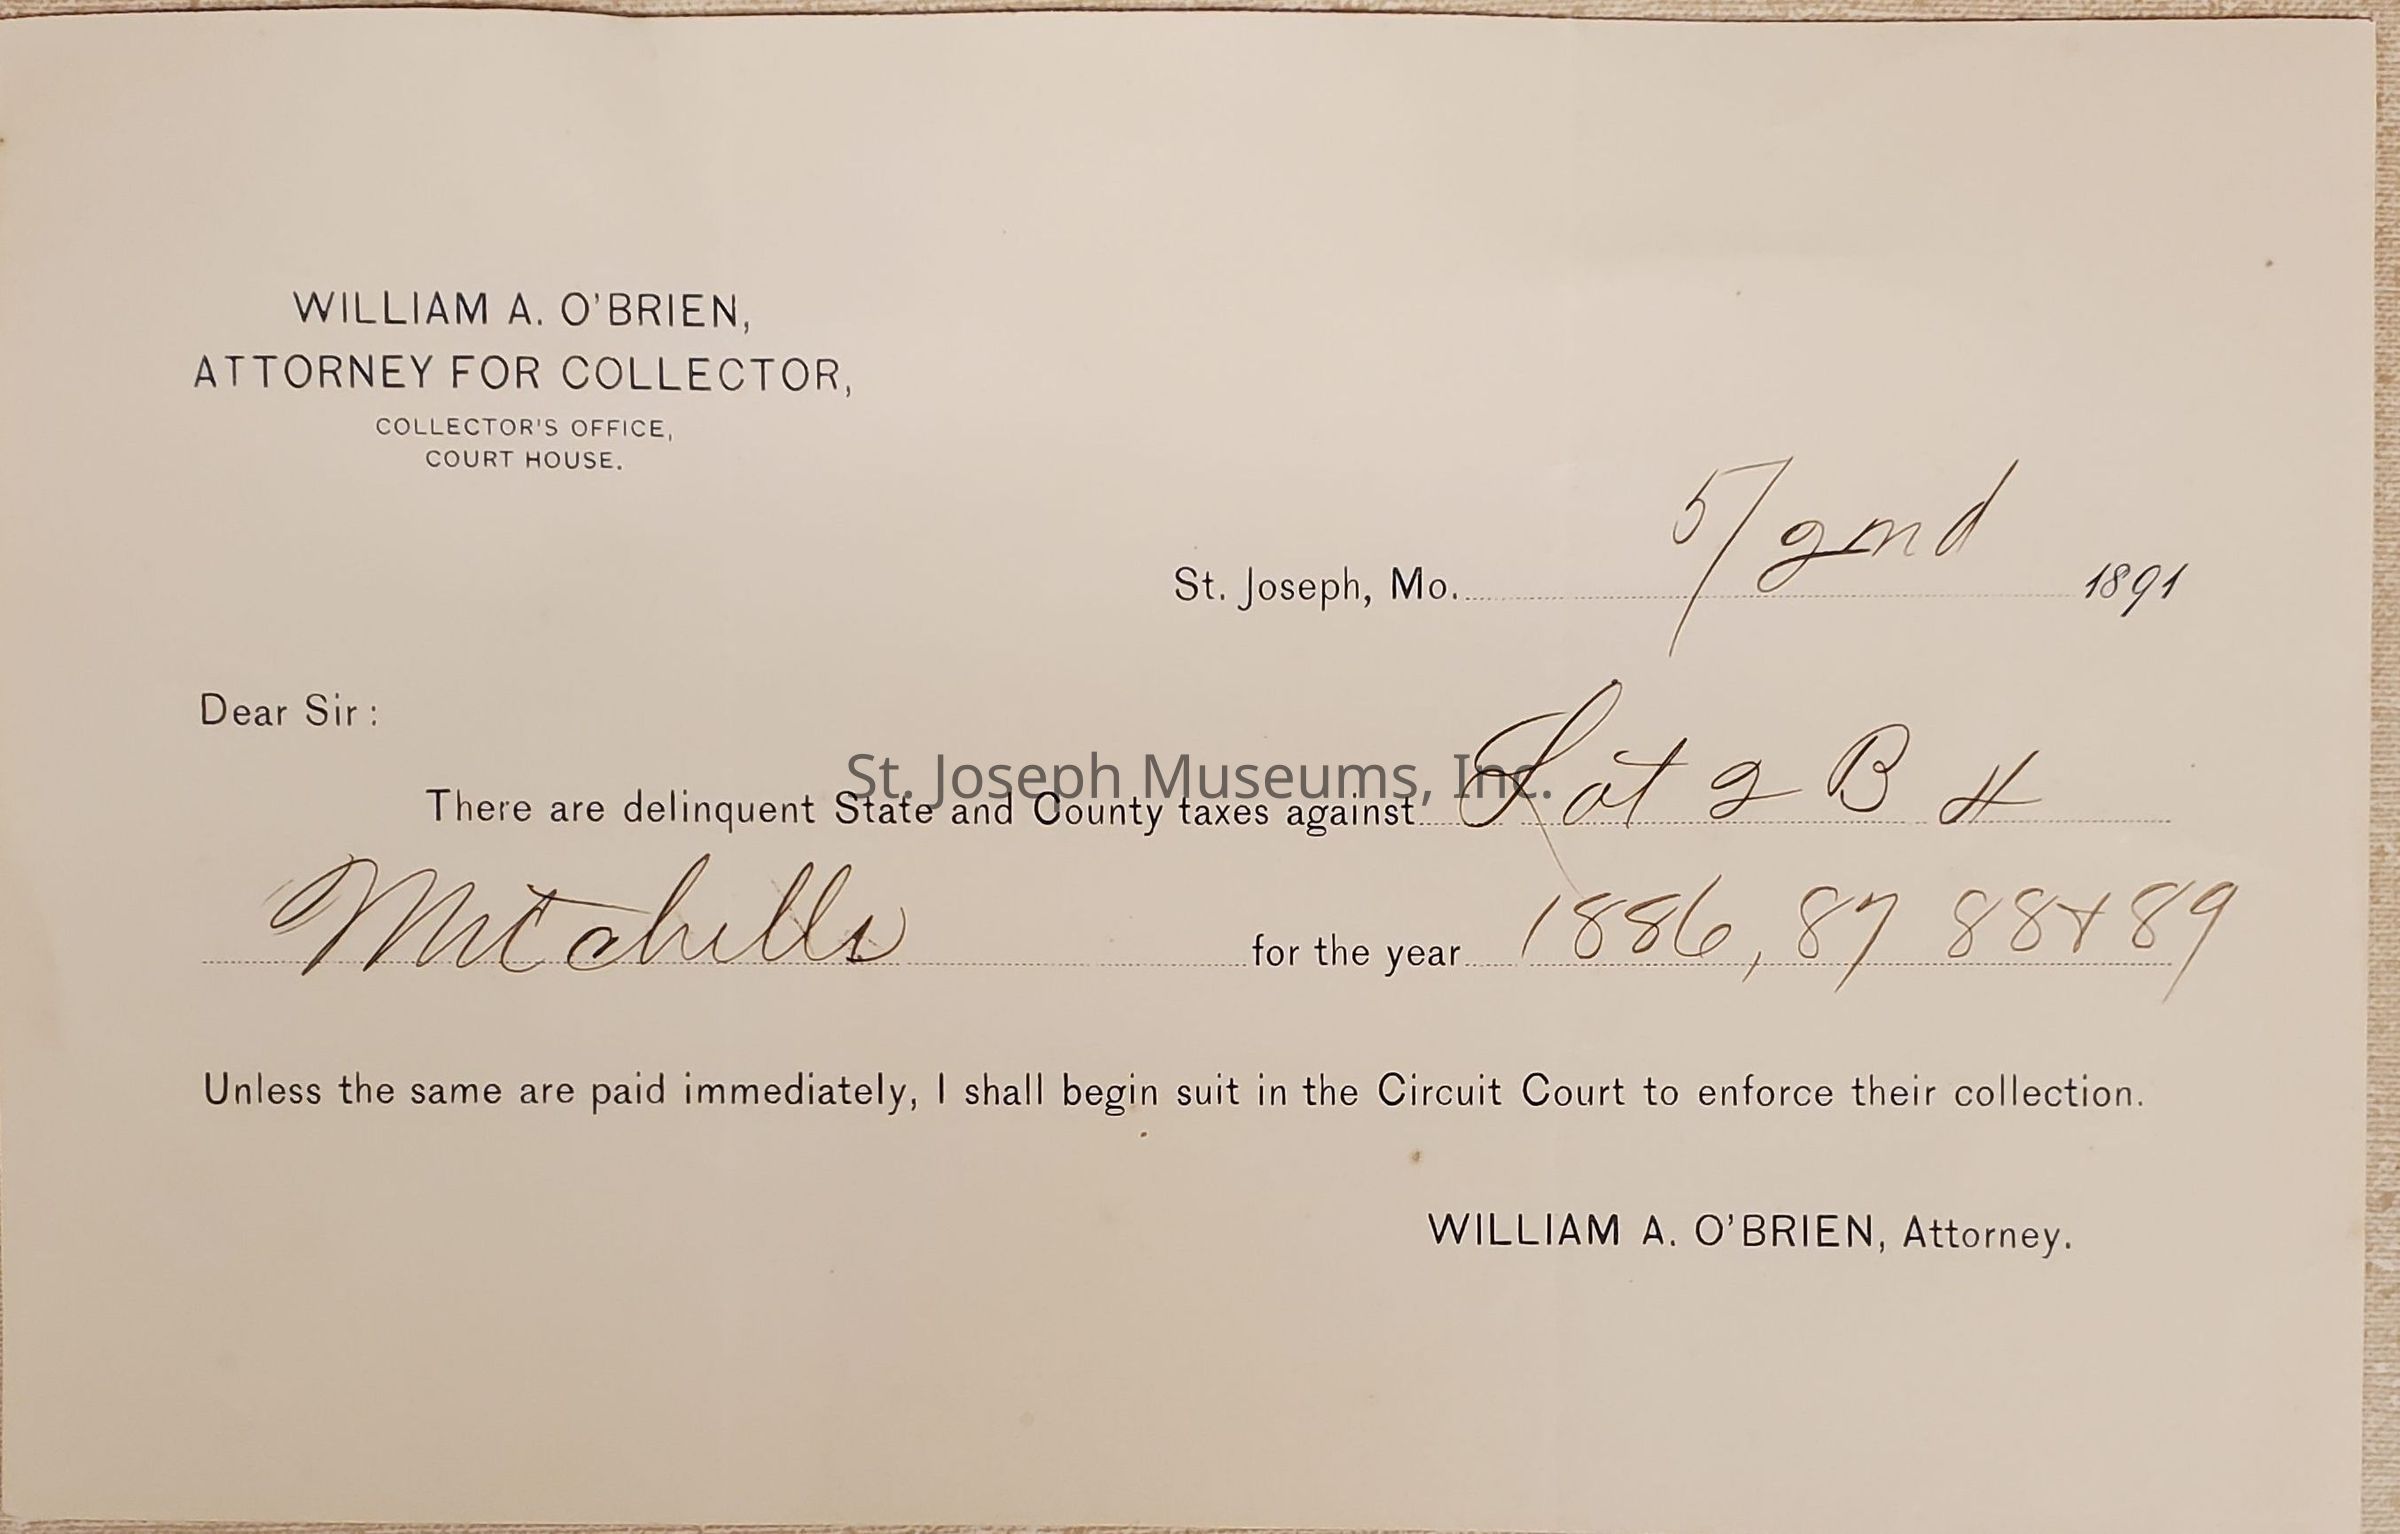 WILLIAM A. O'BRIEN,
ATTORNEY FOR COLLECTOR,
COLLECTOR'S OFFICE,
COURT HOUSE.
St. Joseph, Mo. 5/ 1891
Dear Sir:
St. Joseph Museums, Inc.
There are delinquent State and County taxes against Lot 2 B
Mitchells for the year 1886, 87 88 & 89
Unless the same are paid immediately, I shall begin suit in the Circuit Court to enforce their collection.
WILLIAM A. O'BRIEN, Attorney.